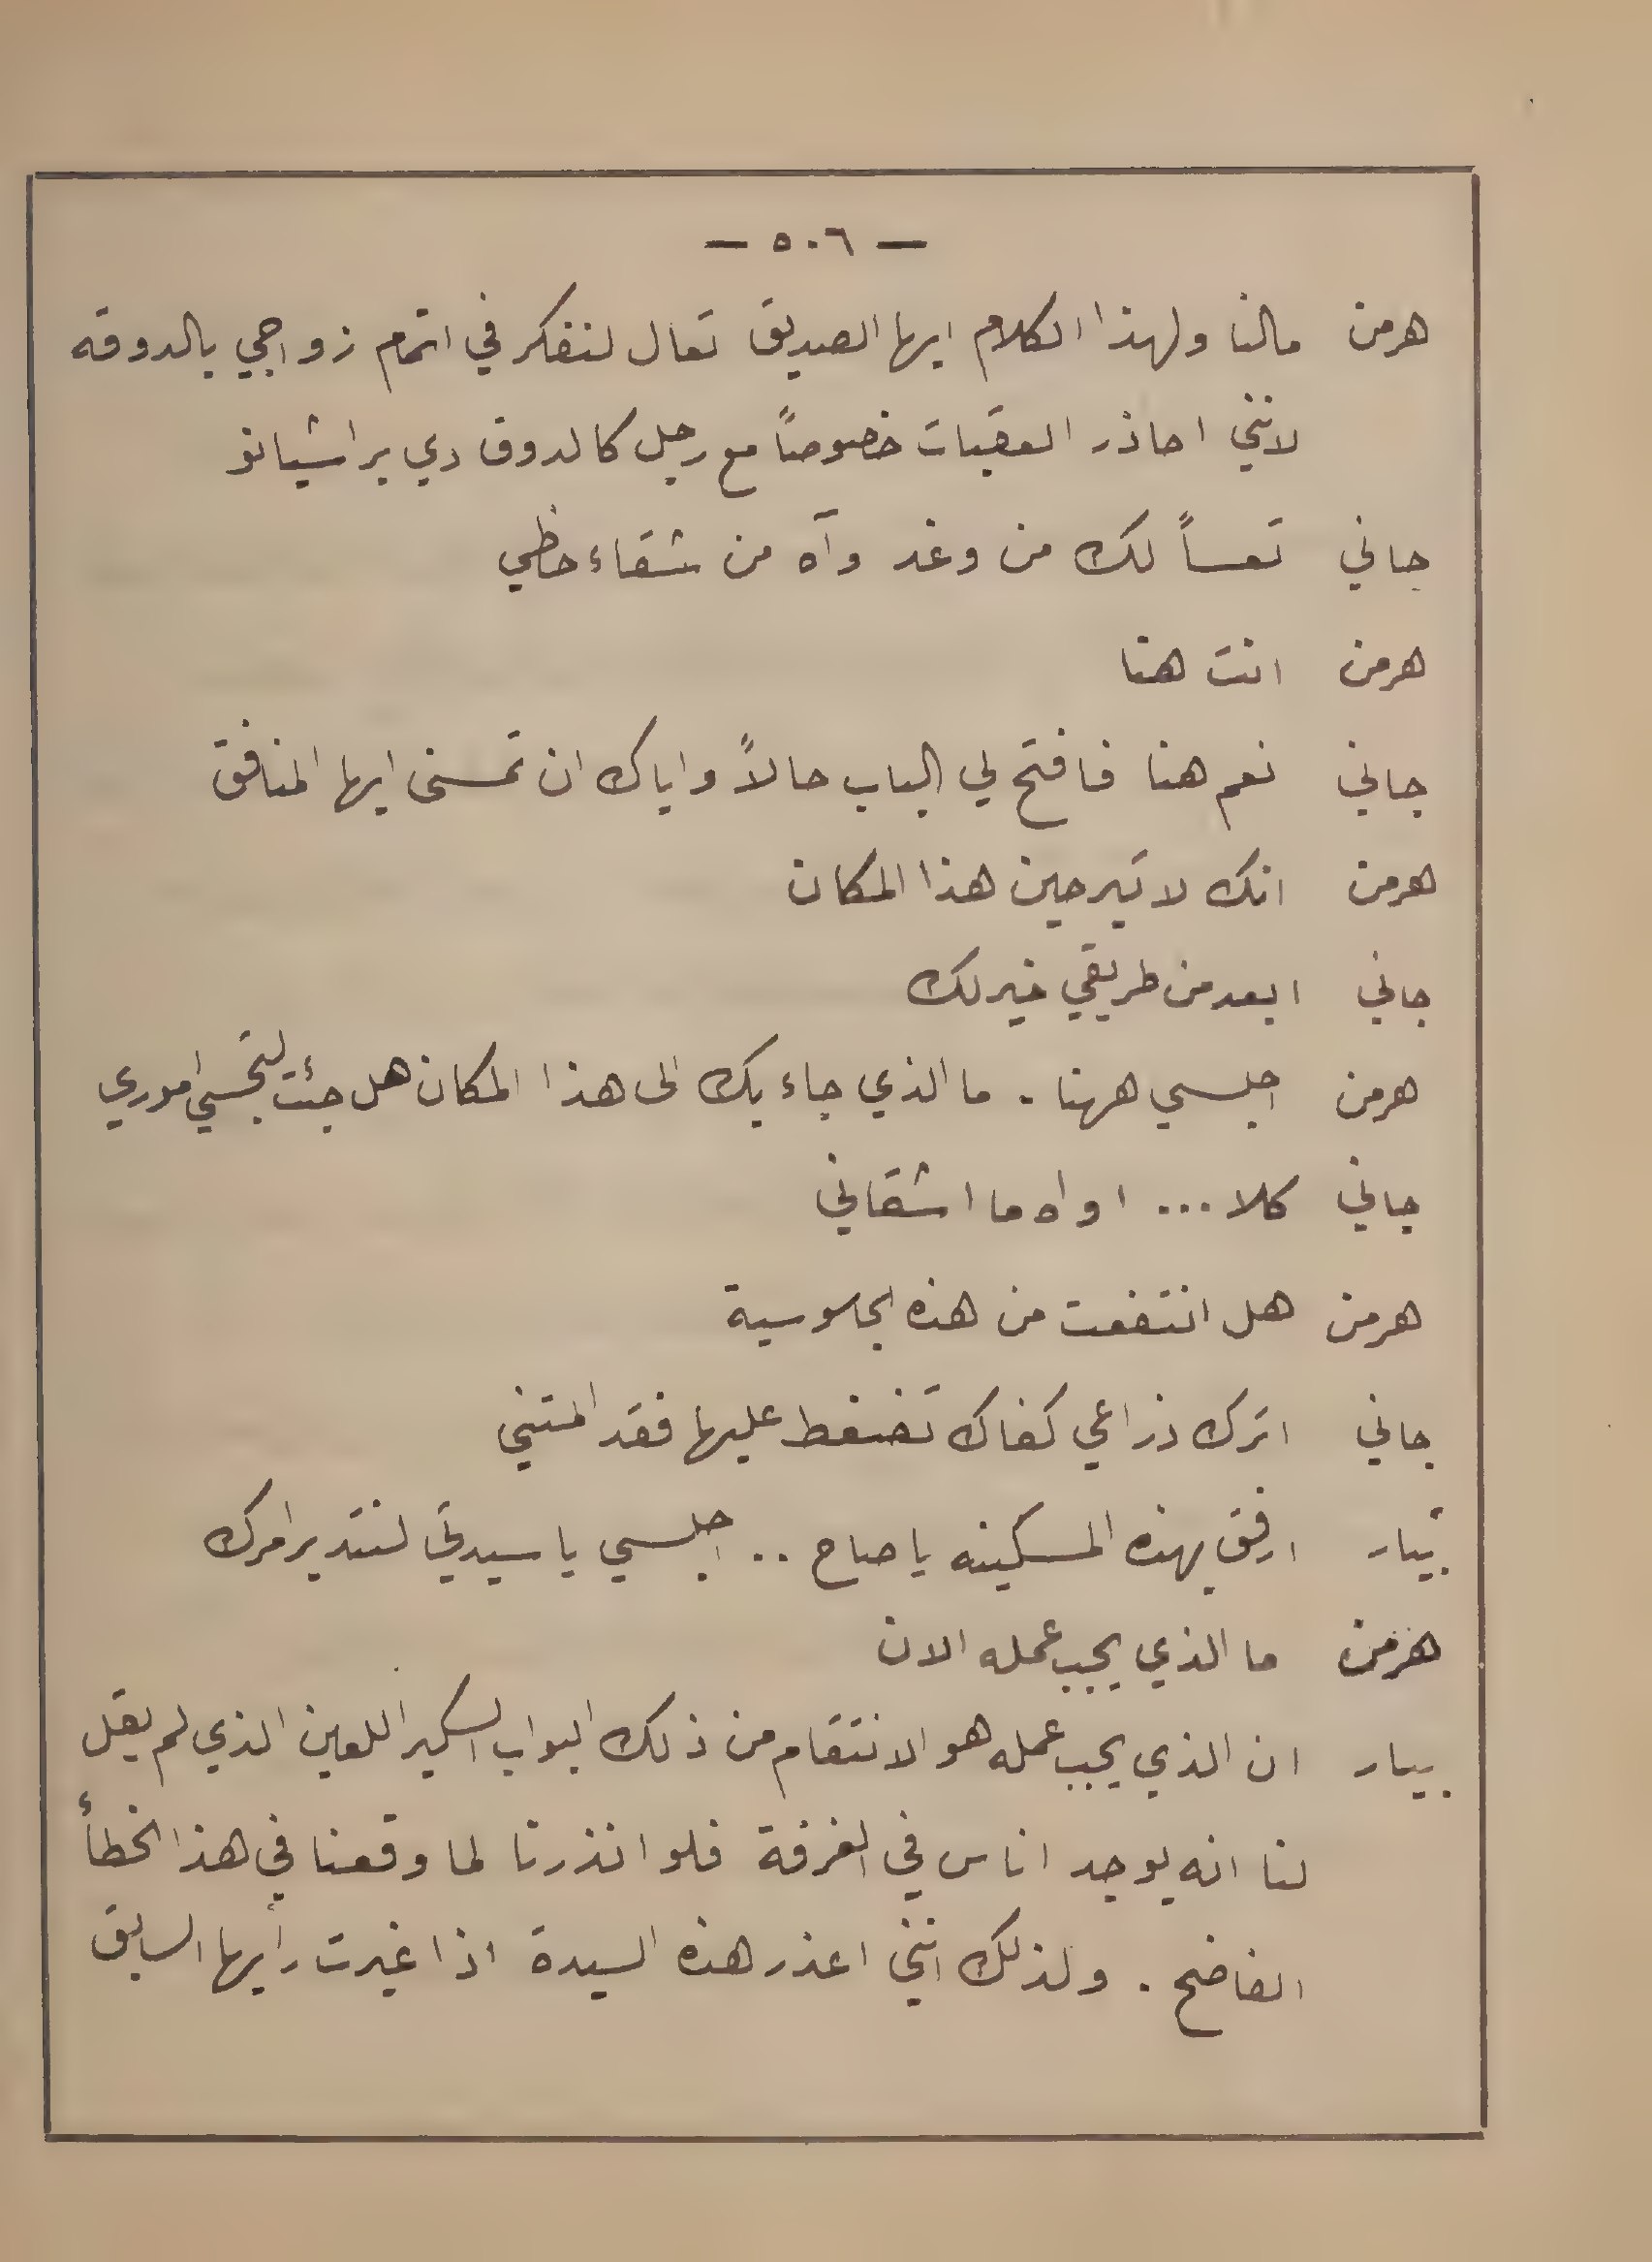 — ٥٠٦ —
هرمن مالنا ولهذا الكلام ايها الصديق تعال لنفكر في اتمام زواجي بالدوقه
لانني احاذر العقبات خصوصاً مع رجل كالدوق دي براشيانو
جاني تعساً لك من وغد وآه من شقاء حظي
هرمن انت هنا
جاني نعم هنا فافتح لي الباب حالاً واياك ان تمسني ايها المنافق
هرمن انك لا تبرحين هذا المكان
جاني ابعد من طريقي خير لك
هرمن اجلسي ههنا . ما الذي جاء بك الى هذا المكان هل جئت لتجسي اموري
جاني كلا ... اواه ما اشقاني
هرمن هل انتفعت من هذه الجاسوسية
جاني اترك ذراعي كفاك تضغط عليها فقد المتني
بيار ارفق بهذه المسكينه يا صاح .. اجلسي يا سيدتي لنتدبر امرك
هرمن ما الذي يجب عمله الان
بيار ان الذي يجب عمله هو الانتقام من ذلك البواب السكير اللعين الذي لم يقل
لنا انه يوجد اناس في الغرفة فلو انذرنا لما وقعنا في هذا الخطأ
الفاضح . ولذلك انني اعذر هذه السيدة اذا غيرت رأيها السابق